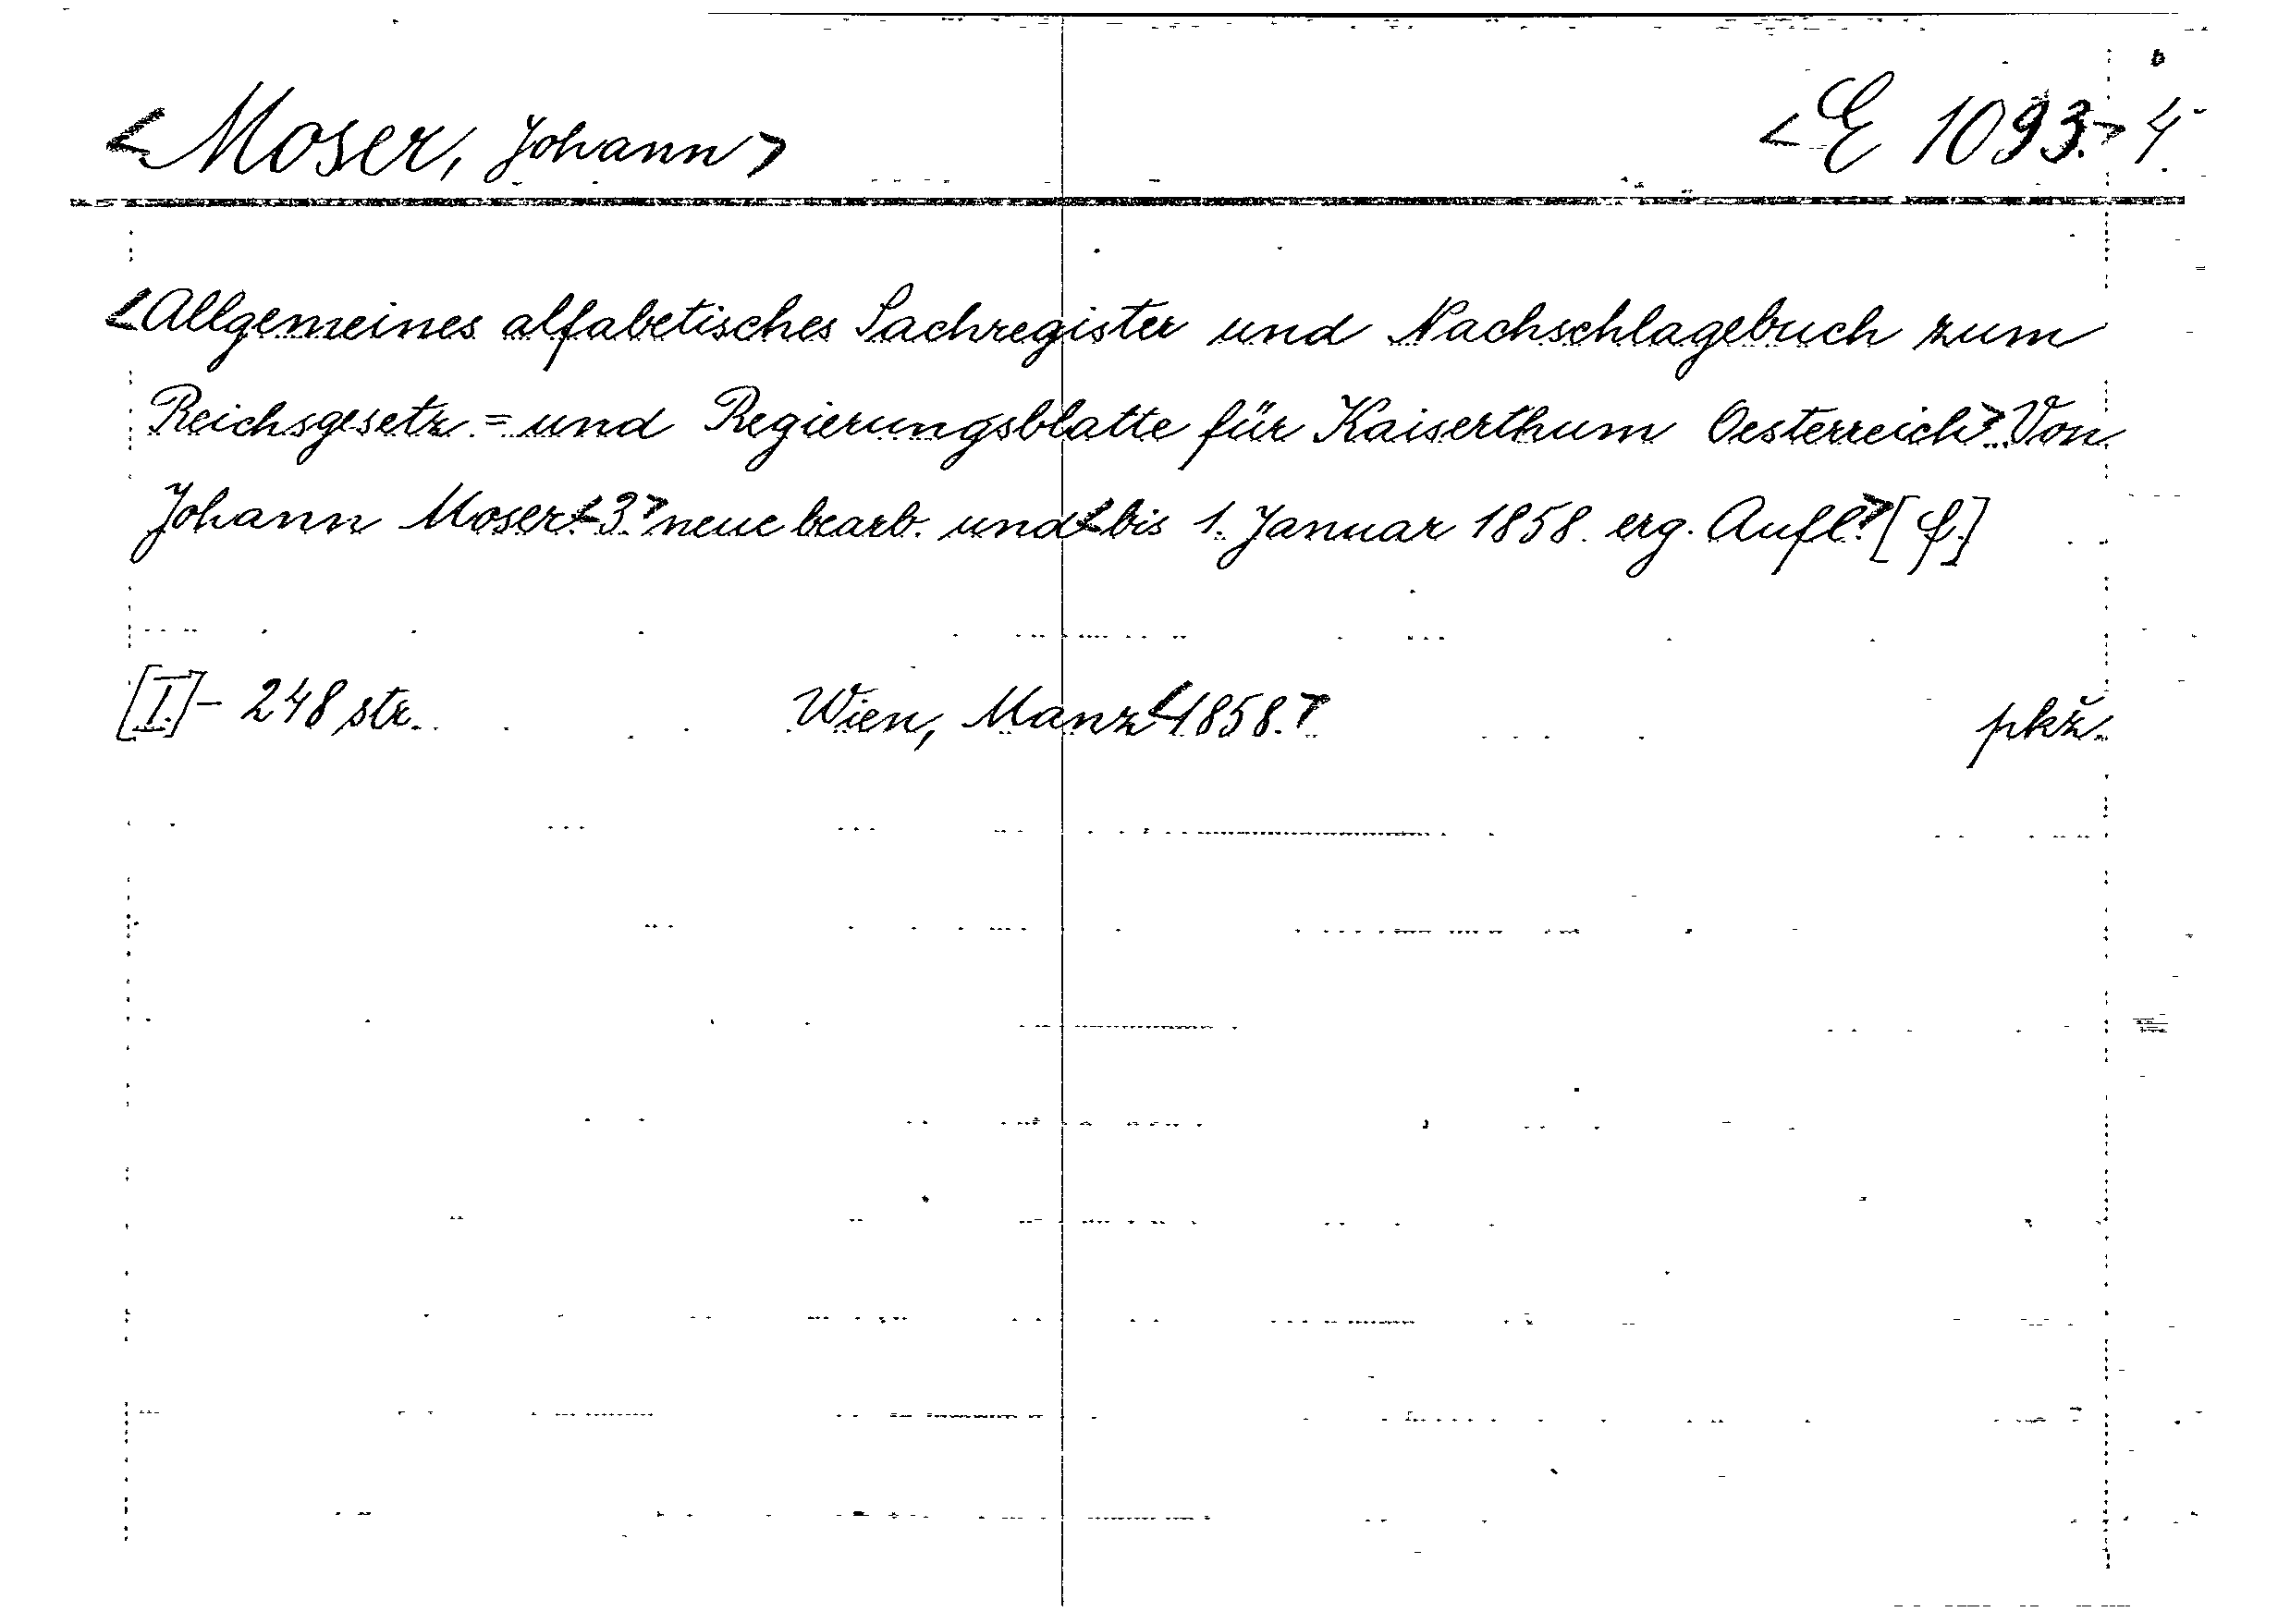 <Moser, Johann> <E 1093.> 4.
<Allgemeines alfabetisches Sachregister und Nachschlagebuch zum
Reichsgesetz.= und Regierungsblatte für Kaiserthum Oesterreich>. Von
Johann Moser. <3.> neue bearb. und <bis 1. Januar 1858. erg. Aufl.> [f.]
[I.] - 248 str. Wien, Manz <1858.>  pkž.